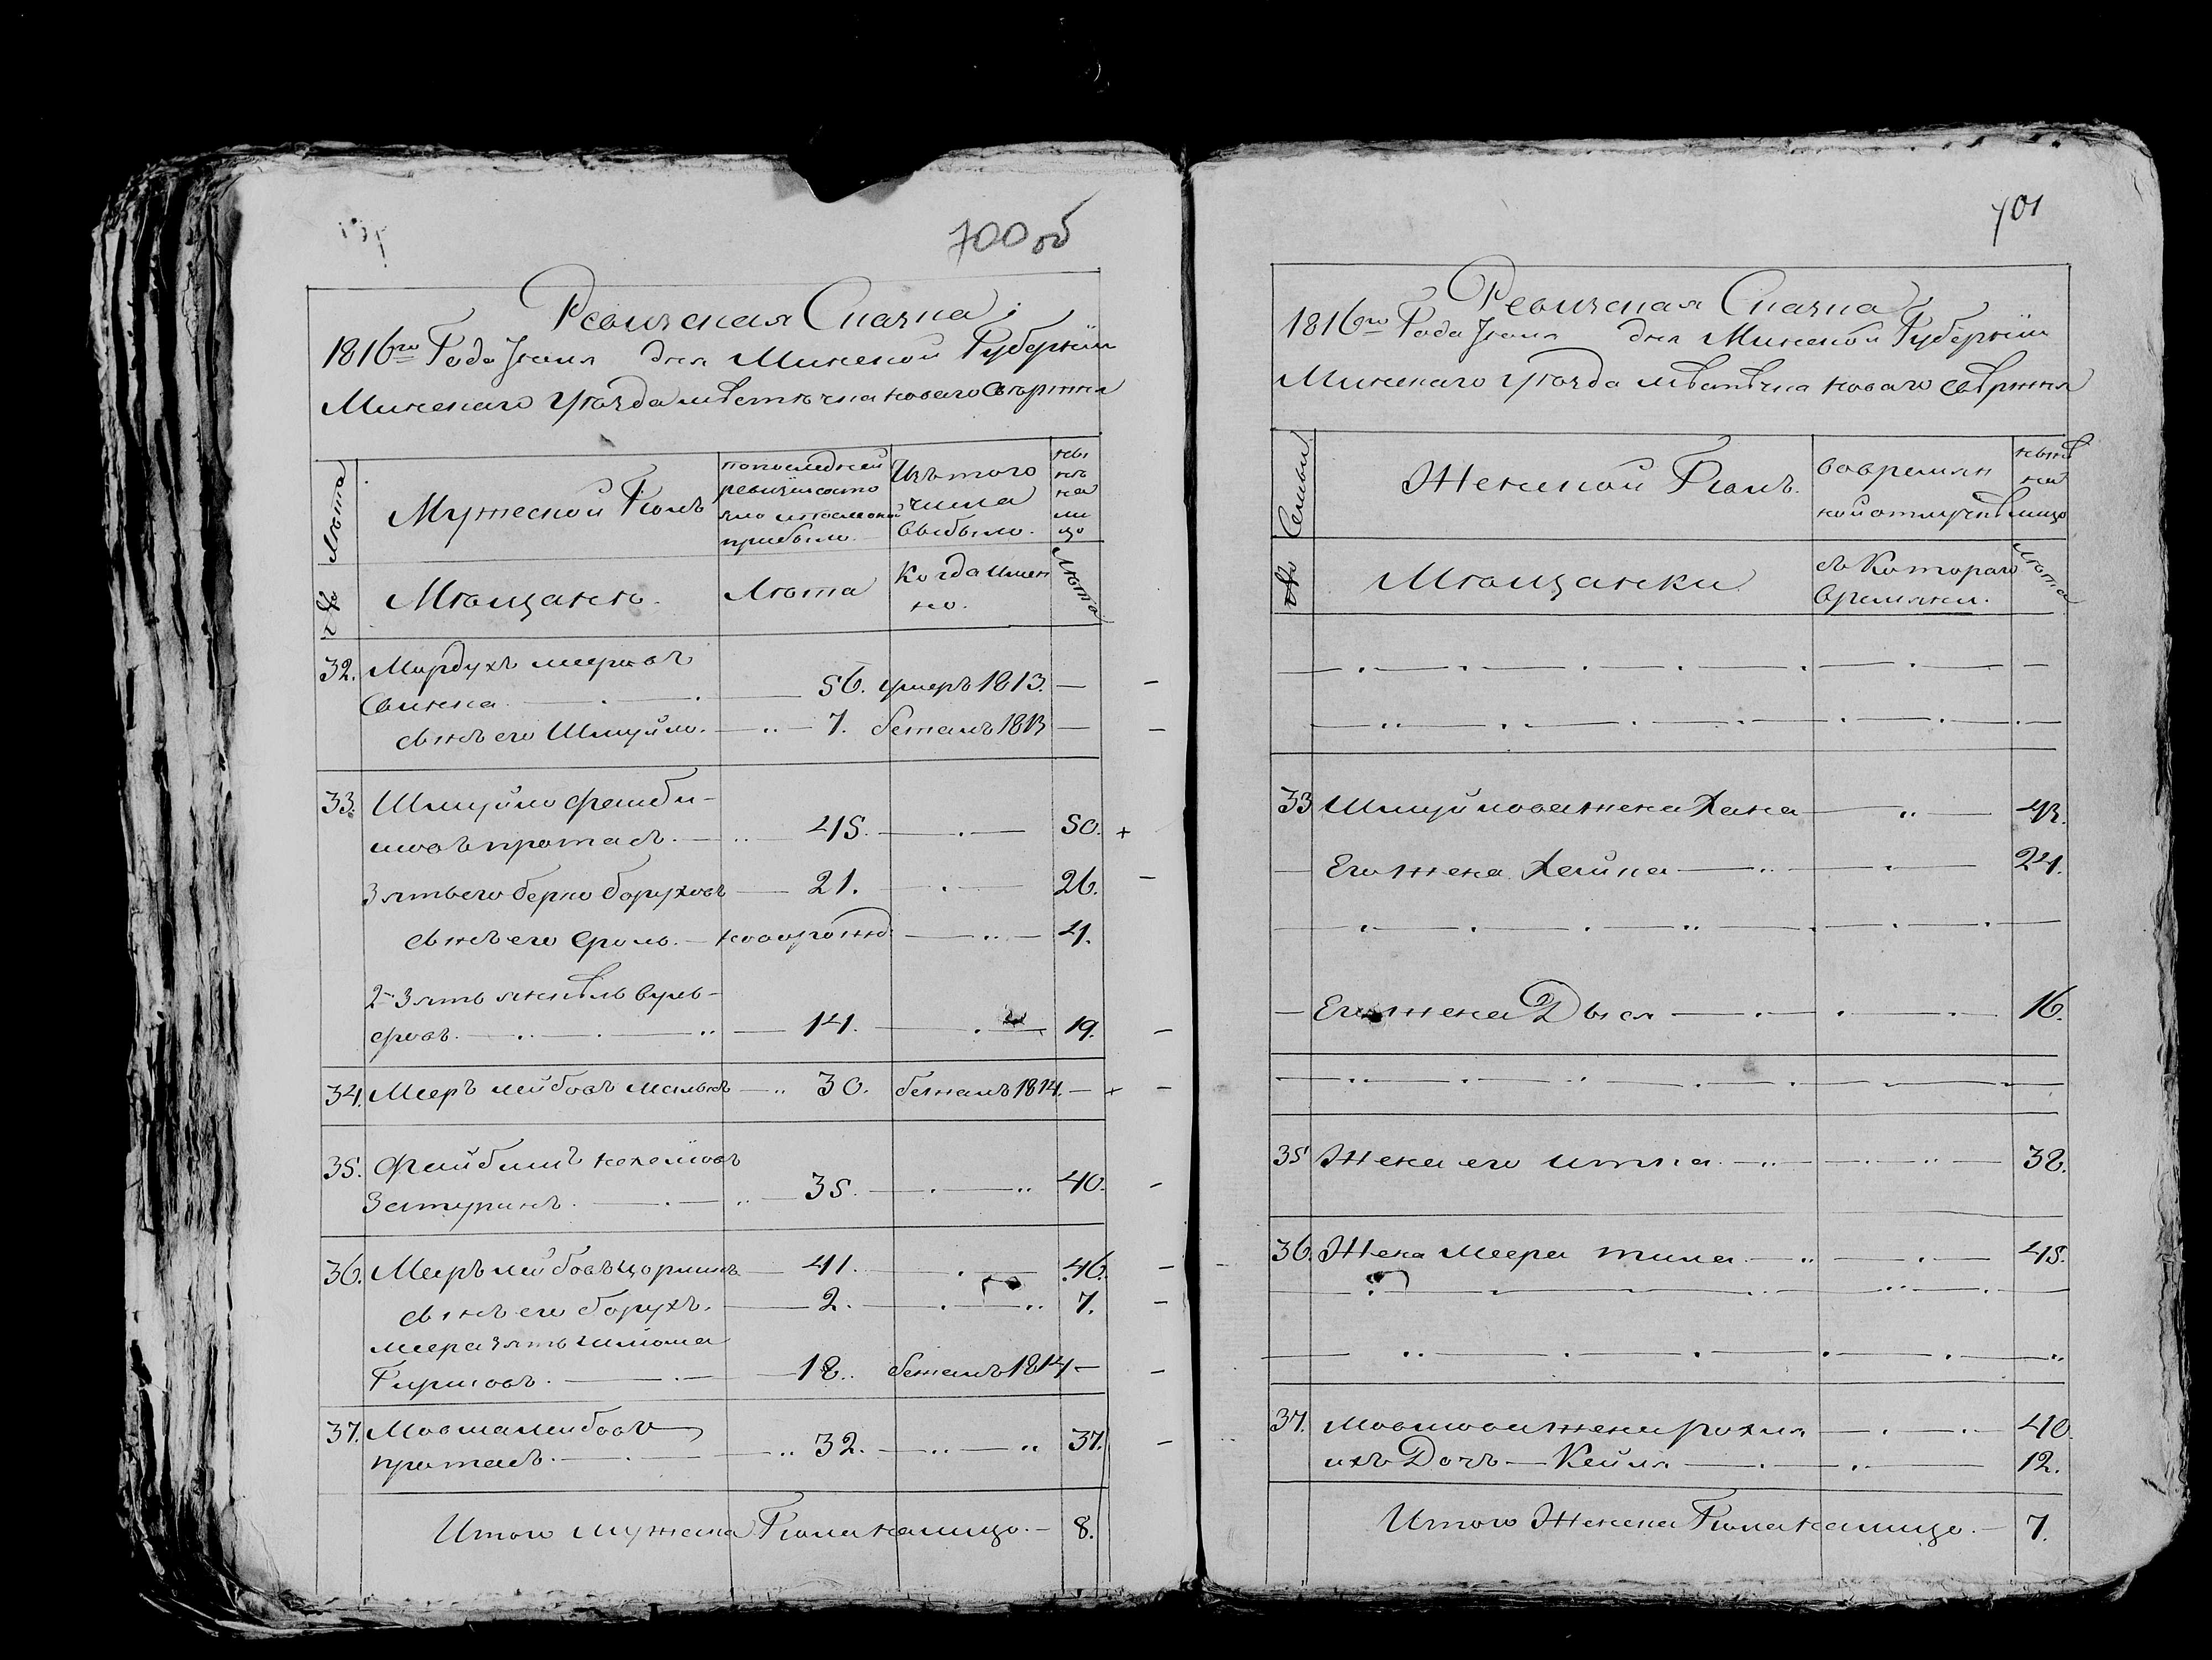 700 об
Ревизская Сказка
1816го Года Июня дня Минской Губернии
Минскаго Уезда местечка новаго Свержня
№ Люта
Мужеской Полъ
попоследней
ревизии состо
яло и после оной
прибыло.
Изъ того
числа
выбыло.
ны
нѣ
на
ли
цо
Мющане.
Люта
Когда имен
но.
Люта
32. Мордухъ мееровъ
Свинка. 56. умеръ 1813. —
сынъ его Шмуйло. 7. бежалъ 1813 —
33. Шмуйло Файби-
шовъ протасъ. 45. 50. +
Зять его берко боруховъ 21. 26.
сынъ его Сроль. новорожд. 4.
2й Зять
14. 19.
34. Мееръ лейбовъ 30. бежалъ 1814. — +
35. Файбишъ
35. 40.
36. Мееръ лейбовъ 41. 46.
сынъ его борухъ. 2. 7.
меера зять шлиома
Гиршовъ. 18. бежалъ 1814 —
37. Мовша лейбовъ
протасъ. 32. 37.
Итого мужеска Пола налицо. — 8.
701
Ревизская Сказка
1816го Года Июня дня Минской Губернии
Минскаго Уезда мѣстѣчка новаго Свѣржня
№ Семьи
Женской Полъ.
вовремян
ной отлучкѣ
нынѣ
на
лицо
Мющанки
съ Котораго
времяни.
Люта
33 Шмуйлова жена Хана 43.
Его жена Хейна 24.
Его жена Двися 16.
35 Жена его итка 38.
36. Жена меера тила 45.
37. мовшова жена рохля 40.
ихъ Дочъ — Кейля 12.
Итого Женска Пола налицо. — 7.